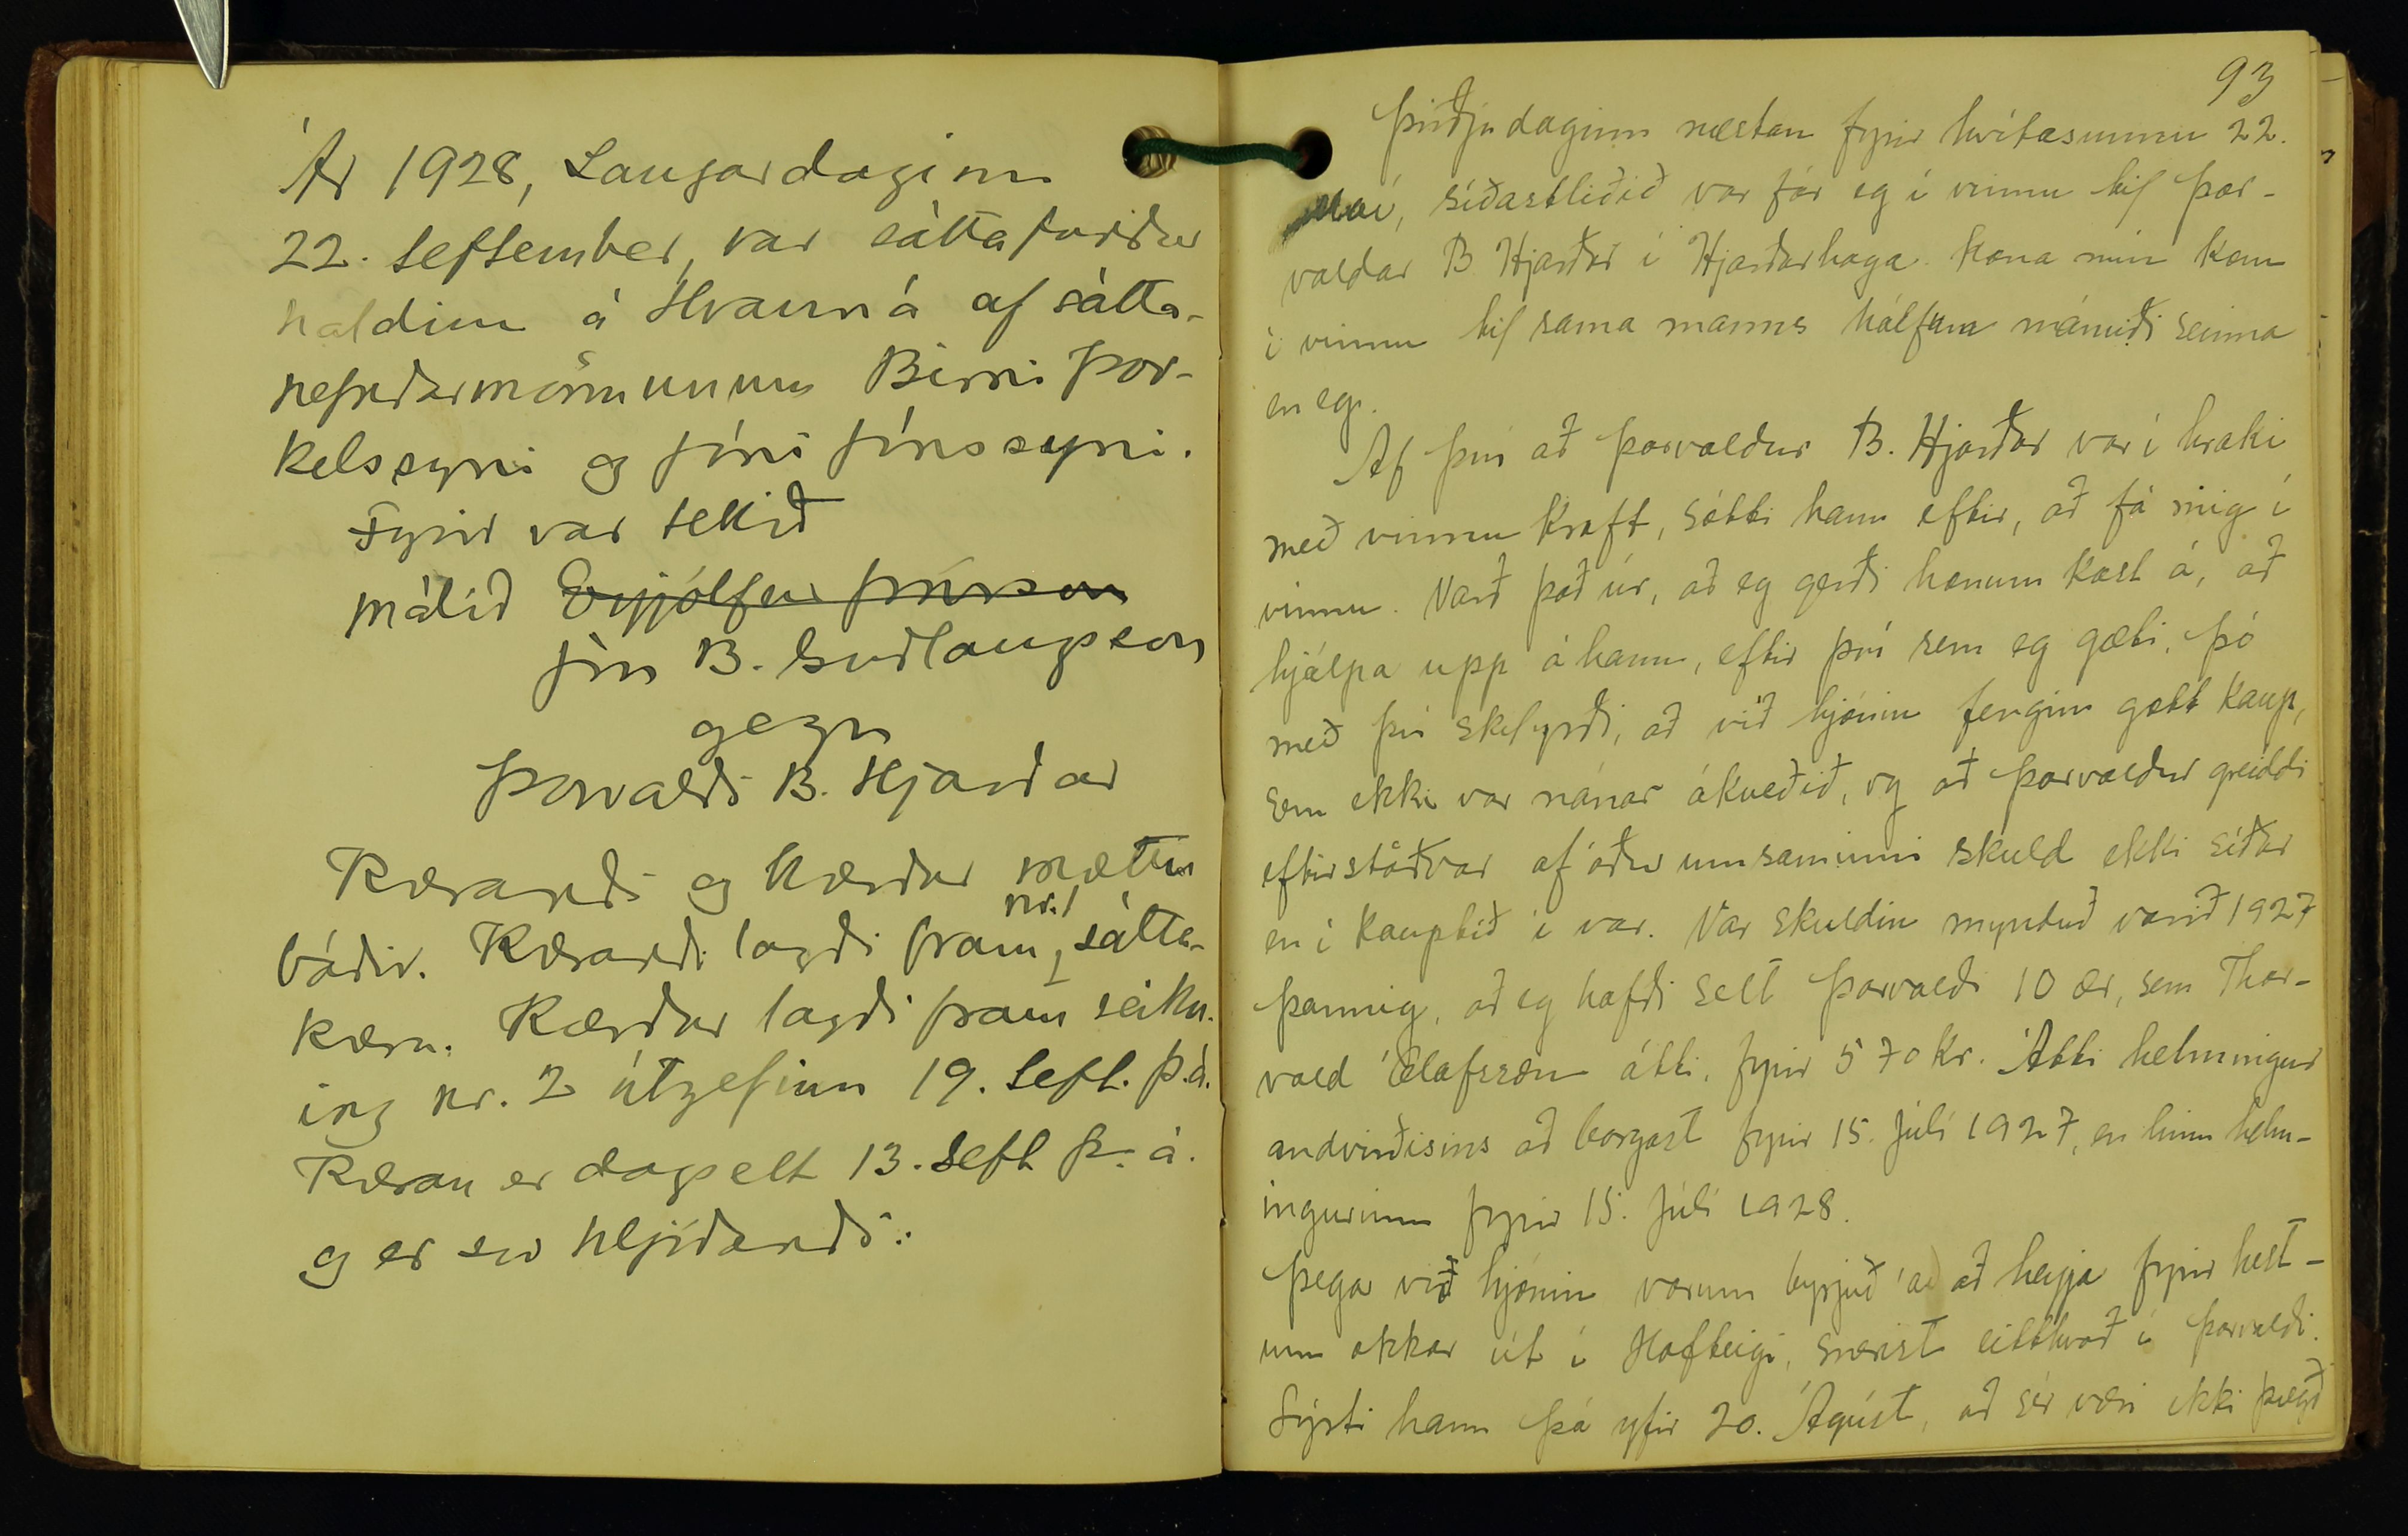 Ár 1928, Laugardaginn
22. September, var sáttafundur
haldinn á Hvanná af sátta-
nefndarmönnunum Birni Þor-
kelssyni og Jóni Jónssyni.
Fyrir var tekið
málið Eyjólfur Jónsson
Jón B. Guðlaugsson
gegn
Þorvaldi B. Hjarðar
Kærandi og kærður mættu
nr. 1
báðir. Kærandi lagði fram sátta-
kæru. Kærður lagði fram reikn-
ing nr. 2 útgefinn 19. Sept. þ.á.
Kæran er dagsett 13. Sept þ. á.
og er svo hljóðandi:
93
Þriðjudaginn næstan fyrir hvítasunnu 22.
Maí, síðastliðið vor fór eg í vinnu til Þor-
valdar B Hjarðar í Hjarðarhaga. Kona mín kom
í vinnu til sama manns hálfum mánuði seinna
en eg.
Af því að Þorvaldur B. Hjarðar var í hraki
með vinnu kraft, sótti hann eftir, að fá mig í
vinnu. Varð það úr, að eg gerði honum kost á, að
hjálpa upp á hann, eftir því sem eg gæti, þó
með því skilyrði, að við hjónin fengjum gott kaup,
sem ekki var nánar ákveðið, og að Þorvaldur greiddi
eftirstöðvar af áður umsaminni skuld ekki síðar
en í kauptíð í vor. Var skuldin mynduð vorið 1927
þannig, að eg hafði selt Þorvaldi 10 ær, sem Thor-
vald Ólafsson átti, fyrir 570 kr. Átti helmingur
andvirðisins að borgast fyrir 15. Júlí 1927, en hinn helm-
ingurinn fyrir 15. Júlí 1928.
Þegar við hjónin vorum byrjuð á að heyja fyrir hest-
um okkar út í Hofteigi, snerist eitthvað í Þorvaldi.
Lýsti hann þá yfir 20. Ágúst, að sér væri ekki þægð